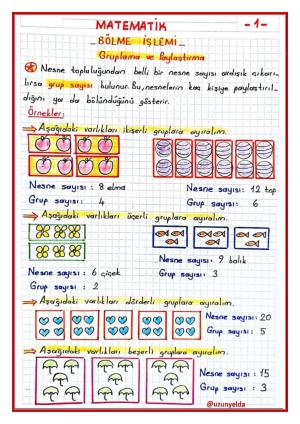 MATEMATİK
-1-
BÖLME İŞLEMİ
Gruplama ve Paylaştırma
Nesne topluluğundan belli bir nesne sayısı ardışık çıkarı-
lırsa grup sayısı bulunur. Bu, nesnelerin kaç kişiye paylaştırıl-
dığını ya da bölündüğünü gösterir.
Örnekler;
Aşağıdaki varlıkları ikişerli gruplara ayıralım.
Nesne sayısı : 8 elma
Grup sayısı : 4
Nesne sayısı : 12 top
Grup sayısı : 6
Aşağıdaki varlıkları üçerli gruplara ayıralım.
Nesne sayısı : 6 çiçek
Grup sayısı : 2
Nesne sayısı : 9 balık
Grup sayısı : 3
Aşağıdaki varlıkları dörderli gruplara ayıralım.
Nesne sayısı : 20
Grup sayısı : 5
Aşağıdaki varlıkları beşerli gruplara ayıralım.
Nesne sayısı : 15
Grup sayısı : 3
@uzunyelda